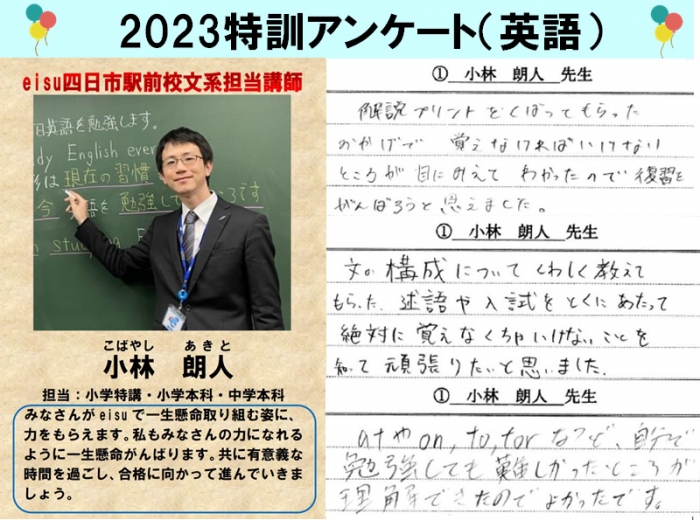 2023特訓アンケート(英語)
eisu四日市駅前校文系担当講師
日英語を勉強します。
dy English ever
は 現在の習慣
今 語を勉強して ころです
studying E
こばやし あきと
小林 朗人
担当:小学特講・小学本科・中学本科
みなさんがeisuで一生懸命取り組む姿に、
力をもらえます。私もみなさんの力になれる
ように一生懸命がんばります。共に有意義な
時間を過ごし、合格に向かって進んでいきま
しょう。
① 小林 朗人 先生
解説プリントをくばってもらった
のおかげで 覚えなければいけない
ところが目にみえてわかったので復習を
がんばろうと思えました。
① 小林 朗人 先生
文の構成についてくわしく教えて
もらった。述語や入試をとくにあたって
絶対に覚えなくちゃいけないことを
知って頑張りたいと思いました。
① 小林 朗人 先生
atやon,to,forなど、自分で
勉強しても難しかったところが
理解できたのでよかったです。